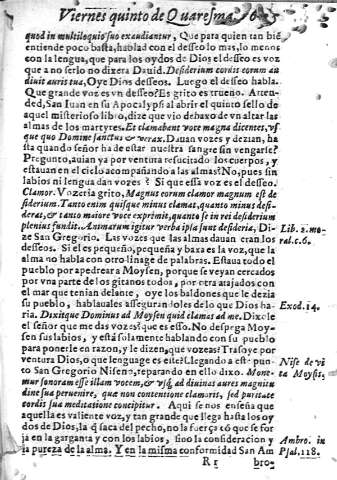 Viernes quinto de Quaresma.
quod in multiloquio suo exaudiantur, Que para quien tan bié
entiende poco basta, hablad con el desseo lo mas, lo menos
con la lengua, que para los oydos de Dios el desseo es voz
que a no serlo no dixera Dauid. Desiderium cordis eorum au
diuit auris tua, Oye Dios desseos. Luego el desseo habla.
Que grande voz es vn desseo? Es grito es trueno. Atten-
ded, San Iuan en su Apocalypsi al abrir el quinto sello de
aquel misterioso libro, dize que vio debaxo de vn altar las
almas de los martyres. Et clamabant voce magna dicentes, vs
que quo Domine sanctus & verax. Dauan vozes y dezian, ha
sta quando señor ha de estar nuestra sangre sin vengarse?
Pregunto, auian ya por ventura resucitado los cuerpos, y
estauan en el cielo acompañando a las almas? No, pues sin
labios ni lengua dan vozes? Si que essa voz es el desseo.
Clamor. Vozeria grito, Magnus eorum clamor magnum est de
siderium. Tanto enim quisque minus clamat, quanto minus desi-
derat, & tanto maiore voce exprimit, quanto se in rei desiderium
plenius fundit. Animarum igitur verba ipsa sunt desideria, Di-
ze San Gregorio. Las vozes que las almas dauan eran los
desseos. Si el es pequeño, pequeña y baxa es la voz, que la
alma no habla con otro linage de palabras. Estaua todo el
pueblo por apedrear a Moysen, porque se veyan cercados
por vna parte de los gitanos todos, por otra atajados con
el mar que tenian delante, oye los baldones que le dezia
su pueblo, hablaua les assegurandoles de lo que Dios ha-
ria. Dixitque Dominus ad Moysen quid clamas ad me. Dixole
el señor que me das vozes? que es esso? No despega Moy-
sen sus labios, y está solamente hablando con su pueblo
para ponerle en razon, y le dizen, que vozeas? Trasoye por
ventura Dios, o que lenguage es este? Llegando a este pun-
to San Gregorio Niseno, reparando en ello dixo. Mone-
mur sonoram esse illam vocem, & vsq; ad diuinas aures magnitu
dine sua peruenire, que non contentione clamoris, sed puritate
cordis sua meditatione concipitur. Aqui se nos enseña que
aquella es valiente voz, y tan grande que llega hasta los oy
dos de Dios, la q̃ saca del pecho, no la fuerça cõ que se for
ja en la garganta y con los labios, sino la consideracion y
la pureza de la alma. Y en la misma conformidad San Am
Rr
bro-
Lib. 2. mo
ral. c. 6.
Exod. 14.
Niss. de vi
ta Moysis.
Ambro. in
Psal. 118.